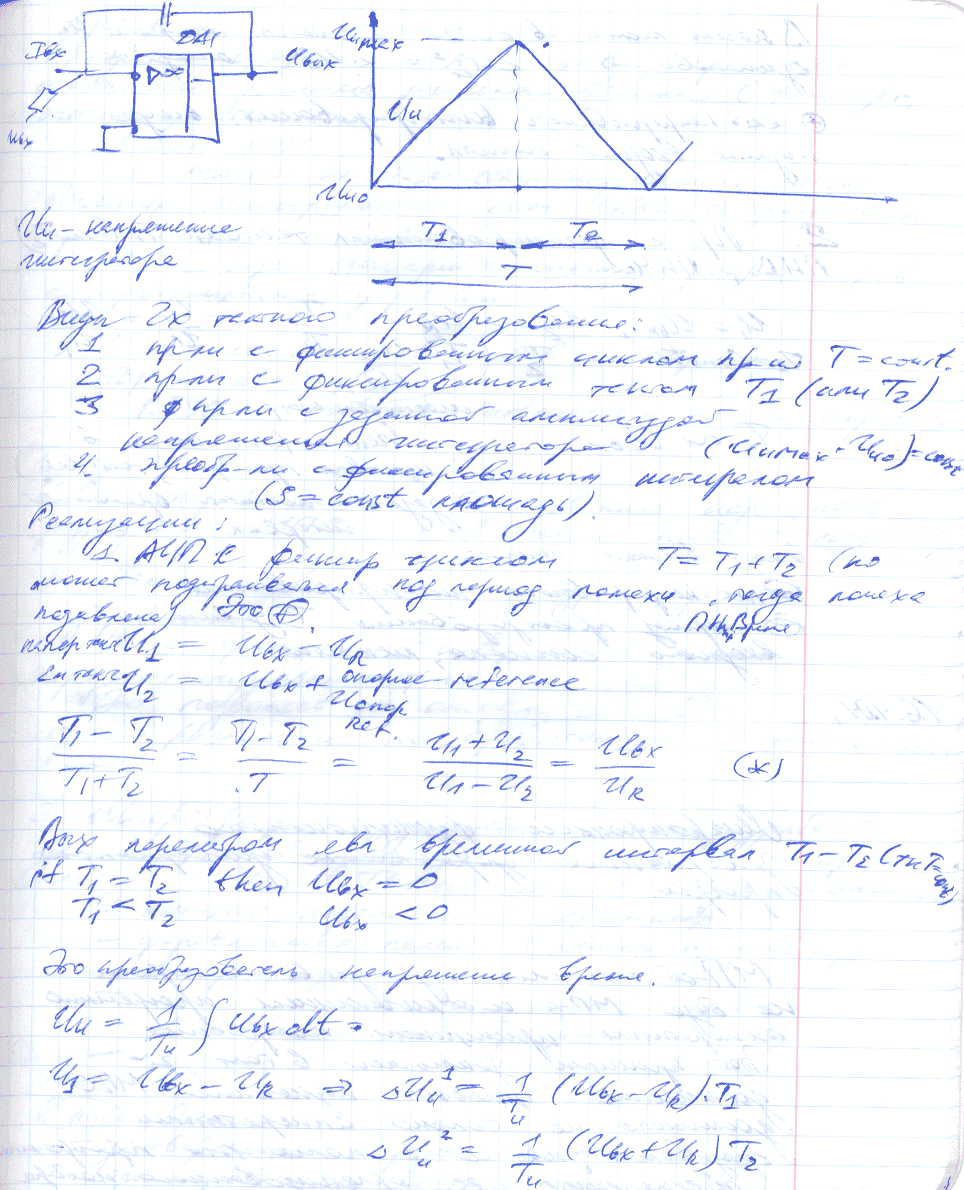 DA1
Iвх
▷∞
Uвых
Uвх
Uиmax
Uи
Uио
T1
T2
T
Uи - напряжение
интегратора
Виды 2х тактного преобразования:
1 пр-ли с фиксированным циклом пр-ия T = const.
2 пр-ли с фиксированным тактом T1 (или T2)
3 пр-ли с заданной амплитудой
напряжения интегратора (Uиmax - Uио) = const
4. преобр-ли с фиксированным интегралом
(S = const площадь).
Реализации:
1. АЦП с фиксир циклом T = T1 + T2 (по
может подстраиваться под период помехи, тогда помеха
подавлена) Это ⊕.
U1 = Uвх - UR
U2 = Uвх + опорное reference
Uопор
Ref.
(T1 - T2)/(T1 + T2) = (T1 - T2)/T = (U1 + U2)/(U1 - U2) = Uвх/UR (*)
Вых параметром явл временной интервал T1 - T2 (тк T = const)
if T1 = T2 then Uвх = 0
T1 < T2 Uвх < 0
Это преобразователь напряжение время.
Uи = 1/Tи ∫ Uвх dt
U1 = Uвх - UR ⇒ ΔUи¹ = 1/Tи (Uвх - UR)·T1
ΔUи² = 1/Tи (Uвх + UR) T2